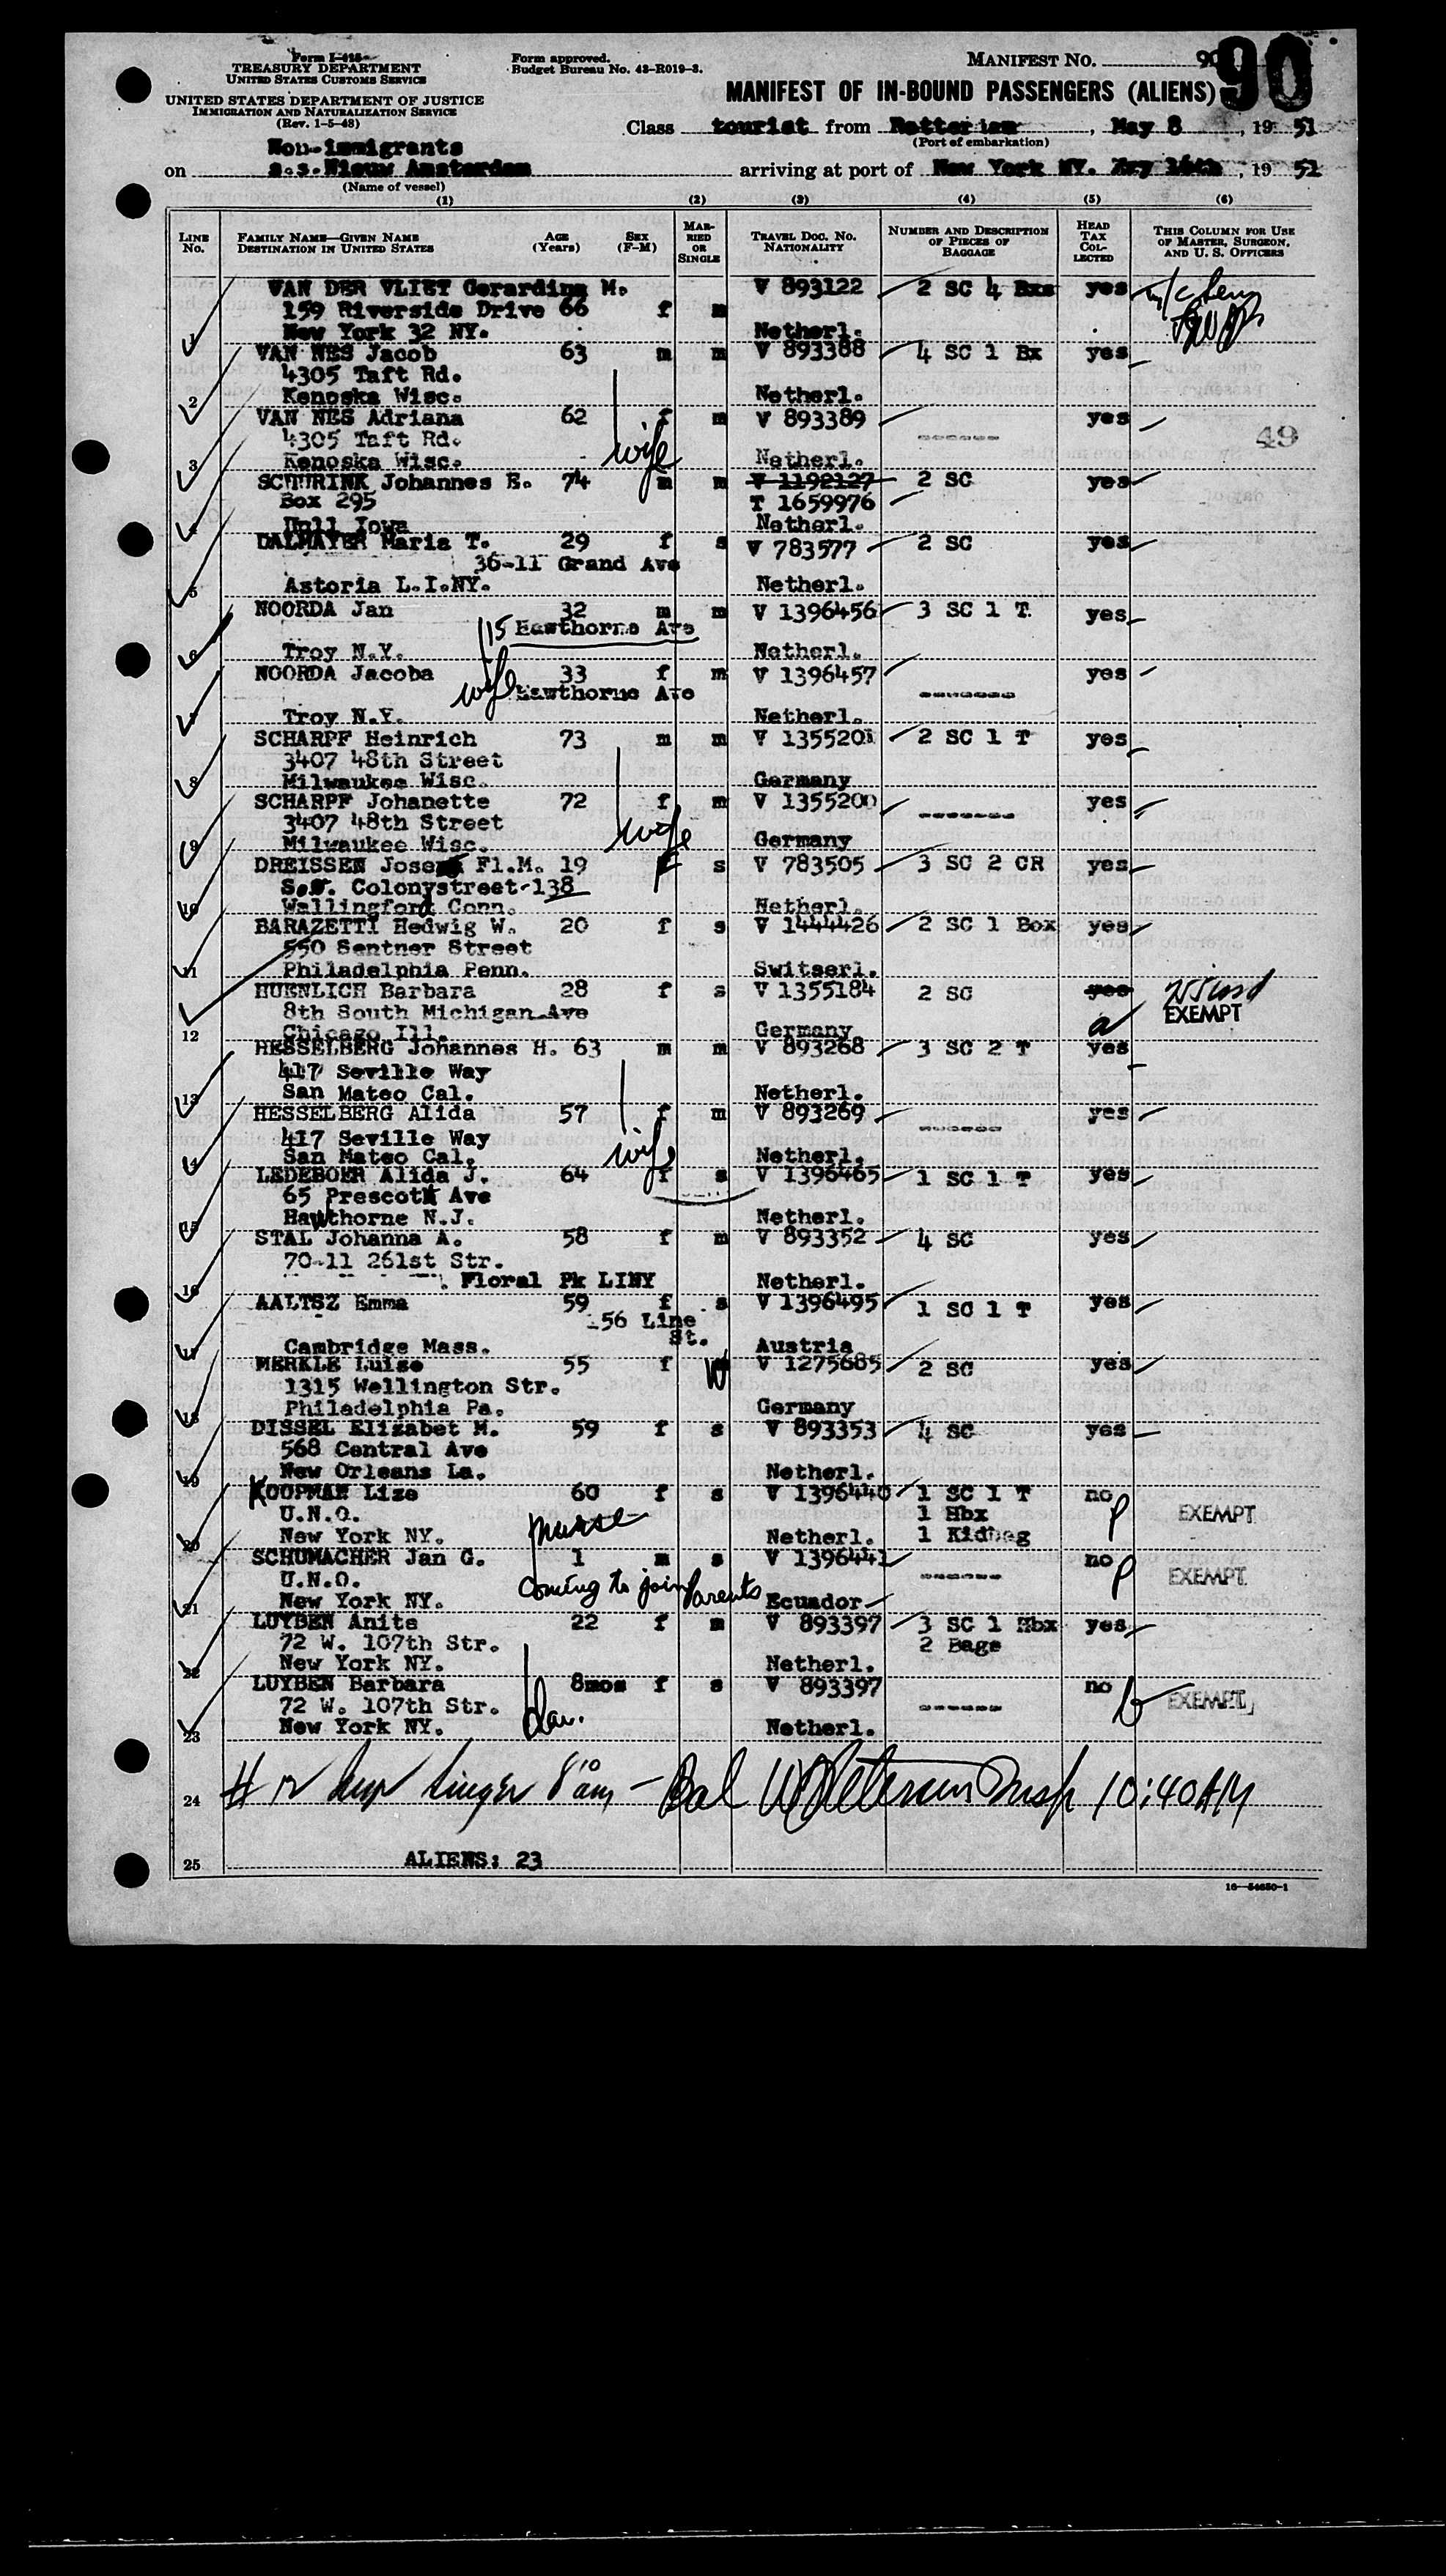 Form I-415
TREASURY DEPARTMENT
UNITED STATES CUSTOMS SERVICE
UNITED STATES DEPARTMENT OF JUSTICE
IMMIGRATION AND NATURALIZATION SERVICE
(Rev. 1-5-48)
Form approved.
Budget Bureau No. 43-R019-3.
MANIFEST NO. 90
90
MANIFEST OF IN-BOUND PASSENGERS (ALIENS)
Class tourist from Rotterdam, May 8, 1951
(Port of embarkation)
Non-immigrants
on s.s. Nieuw Amsterdam arriving at port of New York NY. May 16th, 1951
(Name of vessel)
(1) (2) (3) (4) (5) (6)
LINE No. FAMILY NAME—GIVEN NAME DESTINATION IN UNITED STATES AGE (Years) SEX (F-M) MARRIED OR SINGLE TRAVEL DOC. No. NATIONALITY NUMBER AND DESCRIPTION OF PIECES OF BAGGAGE HEAD TAX COLLECTED THIS COLUMN FOR USE OF MASTER, SURGEON, AND U. S. OFFICERS
VAN DER VLIET Gerardina M. V 893122 2 SC 4 Bxs yes
159 Riverside Drive 66 f m
1 New York 32 NY. Netherl.
VAN NES Jacob 63 m m V 893388 4 SC 1 Bx yes
4305 Taft Rd.
2 Kenoska Wisc. Netherl.
VAN NES Adriana 62 f m V 893389 ------- yes
4305 Taft Rd. wife 49
3 Kenoska Wisc. Netherl.
SCHURINK Johannes E. 74 m m V 1192127 2 SC yes
Box 295 T 1659976
4 Hull Iowa Netherl.
DALMAYER Maria T. 29 f s V 783577 2 SC yes
36-11 Grand Ave
5 Astoria L.I.NY. Netherl.
NOORDA Jan 32 m m V 1396456 3 SC 1 T. yes
115 Hawthorne Ave
6 Troy N.Y. Netherl.
NOORDA Jacoba 33 f m V 1396457 ------- yes
wife Hawthorne Ave
7 Troy N.Y. Netherl.
SCHARPF Heinrich 73 m m V 1355201 2 SC 1 T yes
3407 48th Street
8 Milwaukee Wisc. Germany
SCHARPF Johanette 72 f m V 1355200 ------- yes
3407 48th Street wife
9 Milwaukee Wisc. Germany
DREISSEN Fl.M. 19 F s V 783505 3 SC 2 CR yes
Colonystreet-138
10 Wallingford Conn. Netherl.
BARAZETTI Hedwig W. 20 f s V 1444426 2 SC 1 Box yes
550 Sentner Street
11 Philadelphia Penn. Switserl.
HUENLICH Barbara 28 f s V 1355184 2 SC yes
8th South Michigan Ave EXEMPT
12 Chicago Ill. Germany a
HESSELBERG Johannes H. 63 m m V 893268 3 SC 2 T yes
417 Seville Way
13 San Mateo Cal. Netherl.
HESSELBERG Alida 57 f m V 893269 ------- yes
417 Seville Way wife
14 San Mateo Cal. Netherl.
LEDEBOER Alida J. 64 f s V 1396465 1 SC 1 T yes
65 Prescott Ave
15 Hawthorne N.J. Netherl.
STAL Johanna A. 58 f m V 893352 4 SC yes
70-11 261st Str.
16 Floral Pk LINY Netherl.
AALTSZ Emma 59 f s V 1396495 1 SC 1 T yes
56 Line St.
17 Cambridge Mass. Austria
MERKLE Luise 55 f W V 1275685 2 SC yes
1315 Wellington Str.
18 Philadelphia Pa. Germany
DISSEL Elizabet M. 59 f s V 893353 4 SC yes
568 Central Ave
19 New Orleans La. Netherl.
KOOPMAN Lize 60 f s V 1396440 1 SC 1 T no
U.N.O. nurse 1 Hbx EXEMPT
20 New York NY. Netherl. 1 Kidbag
SCHUMACHER Jan G. 1 m s V 1396441 ------- no
U.N.O. Coming to join Parents EXEMPT
21 New York NY. Ecuador
LUYBEN Anita 22 f m V 893397 3 SC 1 Hbx yes
72 W. 107th Str. 2 Bags
22 New York NY. Netherl.
LUYBEN Barbara 8mos f s V 893397 ------- no
72 W. 107th Str. dau. EXEMPT
23 New York NY. Netherl.
24 Insp 10:40AM
25 ALIENS: 23
16—54650-1